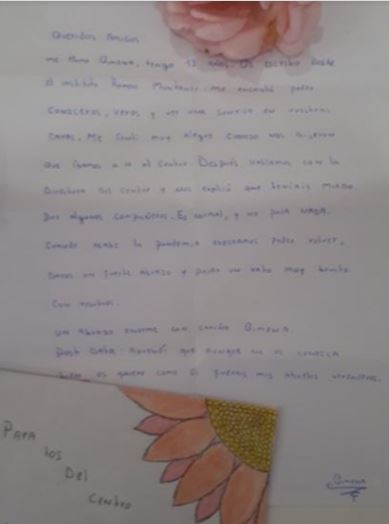 Queridos Amigos
me llamo Gimena, tengo 13 años. Os escribo desde
el instituto Ramon Muntaner. Me encantó poder
conoceros, veros y ver una sonrisa en vuestras
caras. Me sentí muy alegre cuando nos dijeron
que íbamos a ir al centro. Después hablamos con la
directora del centro y nos explicó que teníais miedo
por algunos compañeros. Es normal, y no pasa NADA.
Cuando acabe la pandemia esperamos poder volver,
daros un fuerte abrazo y pasar un rato muy bonito
con vosotros.
un abrazo enorme con cariño Gimena.
Post Data: aprendí que aunque no os conozca
os quiero como si fuerais mis abuelos verdaderos.
PARA
los
Del
centro
Gimena